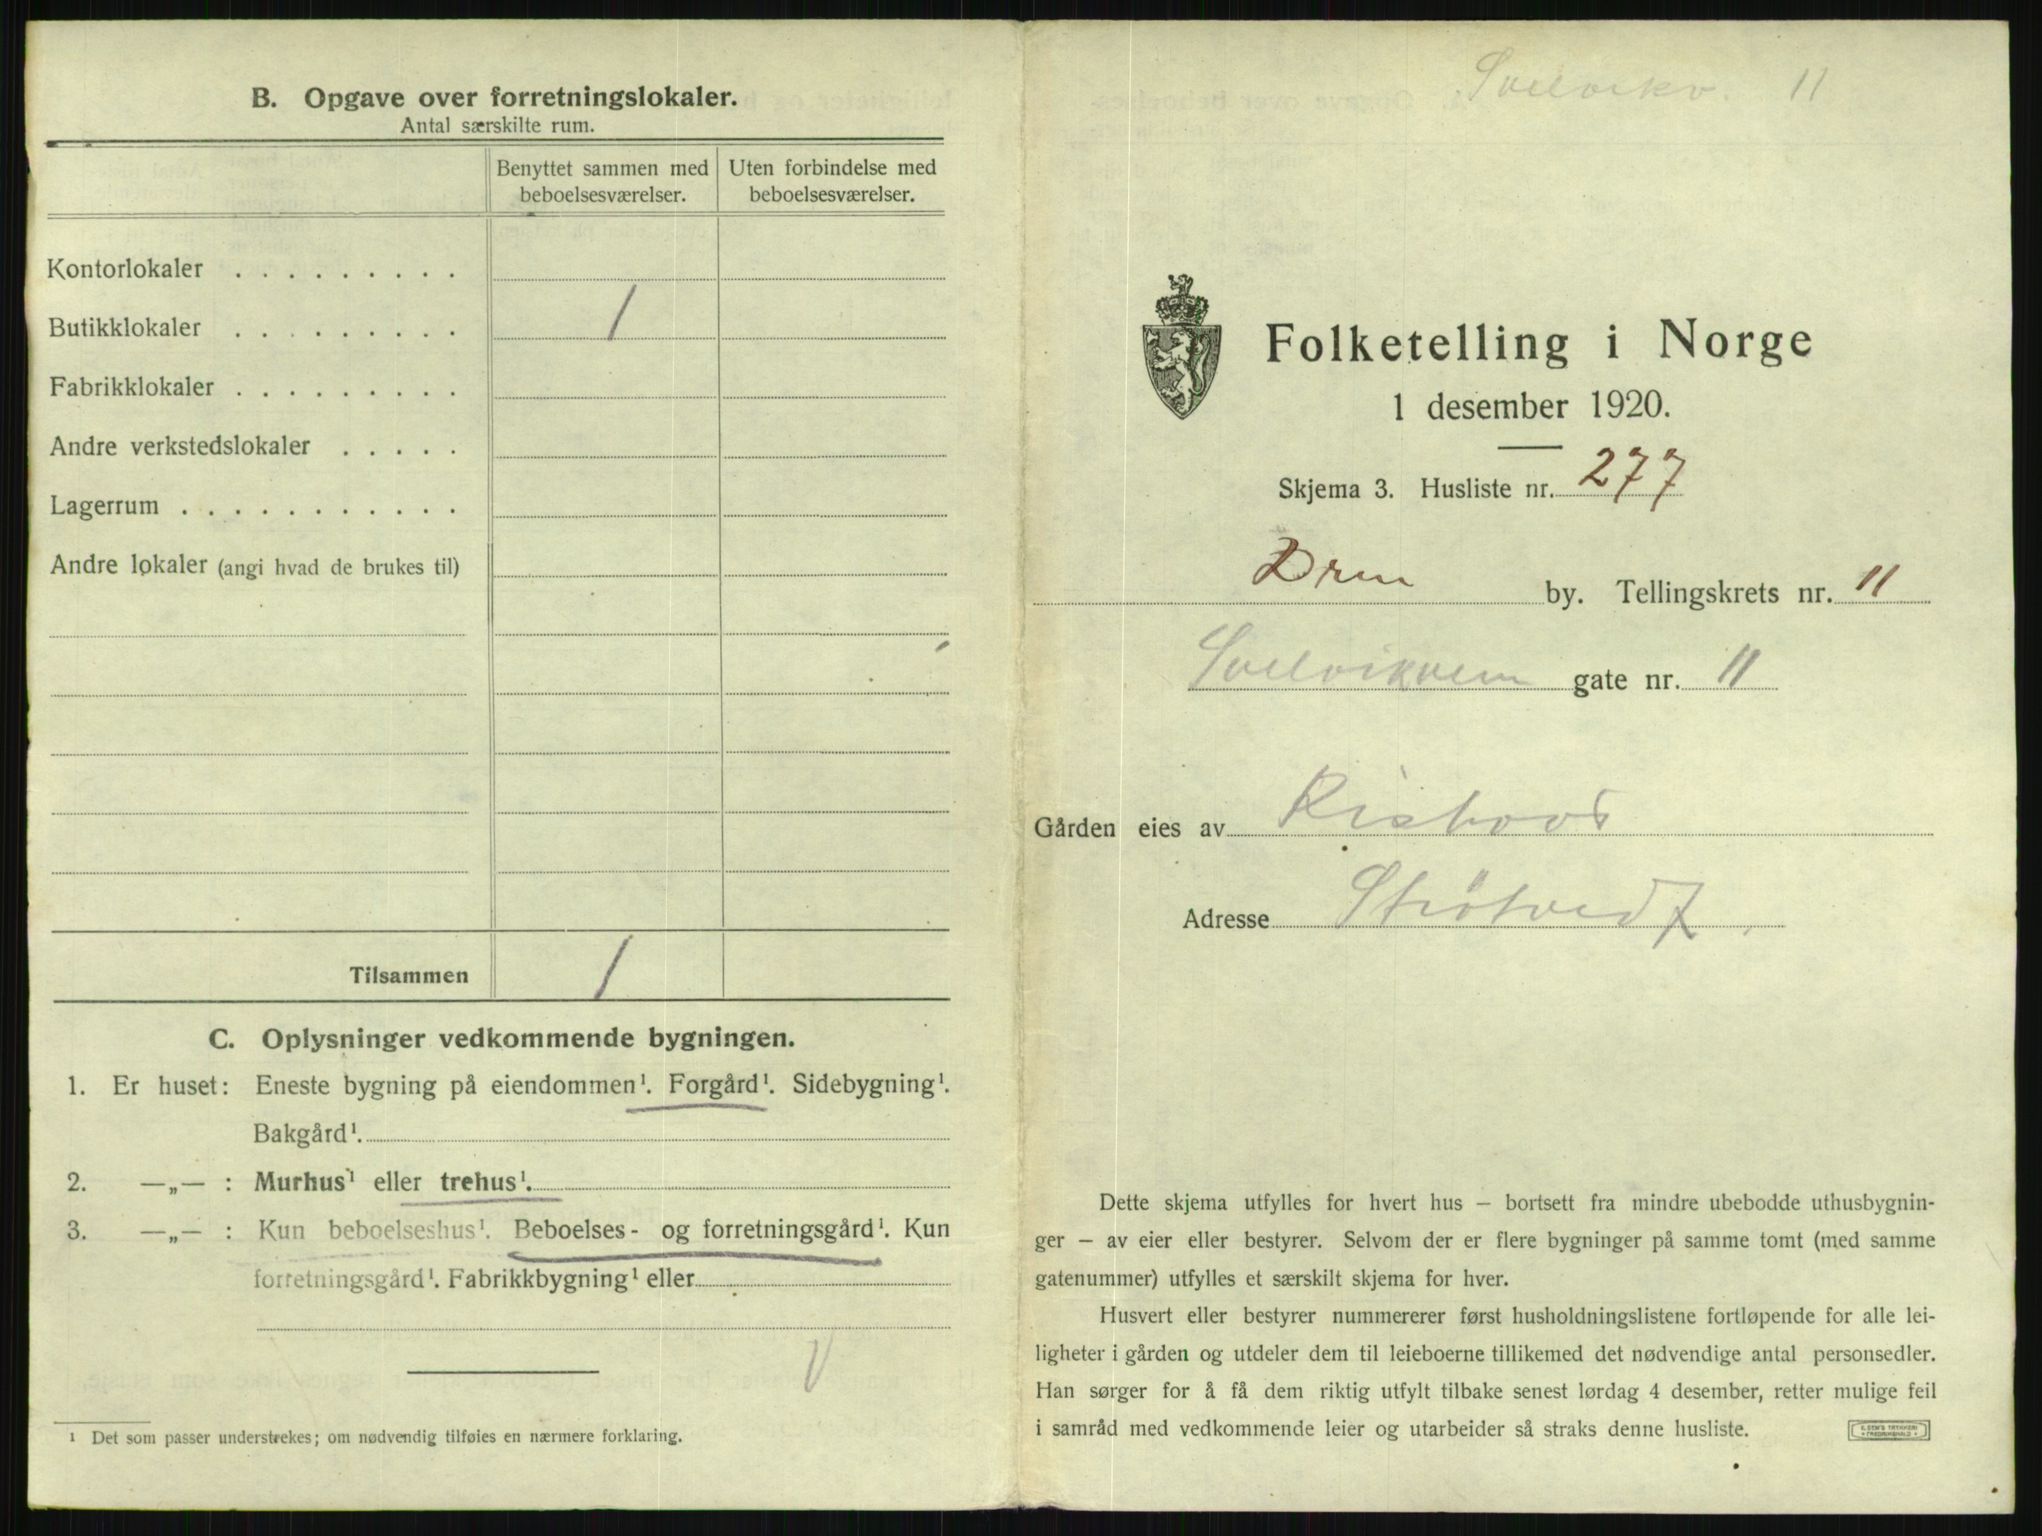 B. Opgave over forretningslokaler.
Antal særskilte rum.
Benyttet sammen med beboelsesværelser.
Uten forbindelse med beboelsesværelser.
Kontorlokaler . . . . . . . . .
Butikklokaler . . . . . . . . . 1
Fabrikklokaler . . . . . . . . .
Andre verkstedslokaler . . . . .
Lagerrum . . . . . . . . . . . .
Andre lokaler (angi hvad de brukes til)
Tilsammen 1
C. Oplysninger vedkommende bygningen.
1. Er huset: Eneste bygning på eiendommen¹. Forgård¹. Sidebygning¹.
Bakgård¹.
2. —„— : Murhus¹ eller trehus¹.
3. —„— : Kun beboelseshus¹. Beboelses- og forretningsgård¹. Kun
forretningsgård¹. Fabrikkbygning¹ eller
V
¹ Det som passer understrekes; om nødvendig tilføies en nærmere forklaring.
Svelvikv. 11
Folketelling i Norge
1 desember 1920.
Skjema 3. Husliste nr. 277
Drm by. Tellingskrets nr. 11
Svelvikvein gate nr. 11
Gården eies av
Adresse
Dette skjema utfylles for hvert hus – bortsett fra mindre ubebodde uthusbygnin-
ger – av eier eller bestyrer. Selvom der er flere bygninger på samme tomt (med samme
gatenummer) utfylles et særskilt skjema for hver.
Husvert eller bestyrer nummererer først husholdningslistene fortløpende for alle lei-
ligheter i gården og utdeler dem til leieboerne tillikemed det nødvendige antal personsedler.
Han sørger for å få dem riktig utfylt tilbake senest lørdag 4 desember, retter mulige feil
i samråd med vedkommende leier og utarbeider så straks denne husliste.